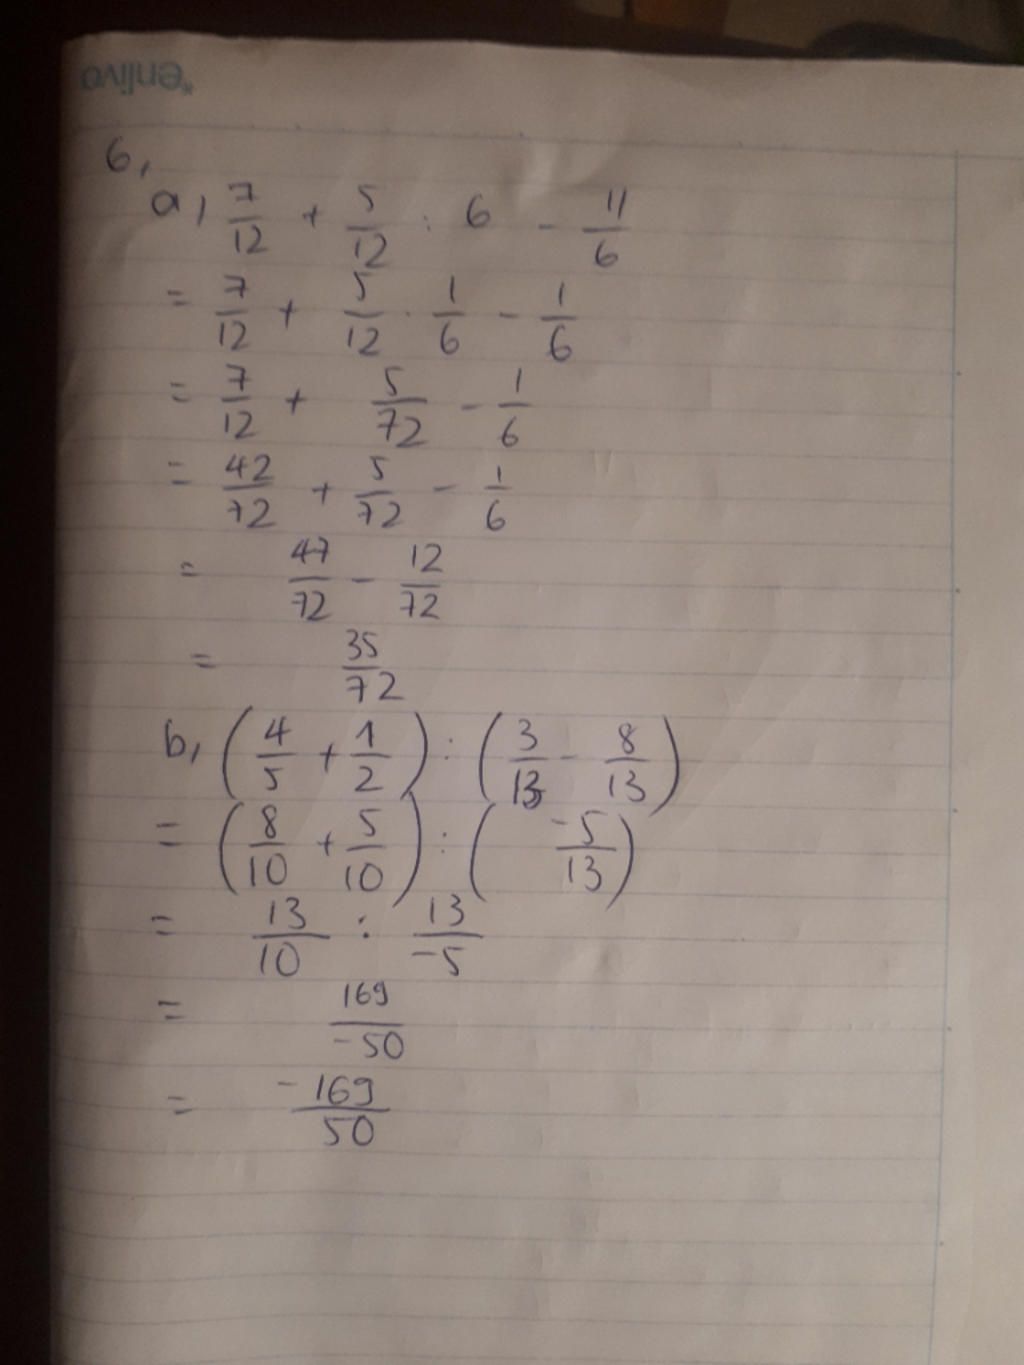 *enlivo
6,
a, 7/12 + 5/12 : 6 - 11/6
= 7/12 + 5/12 . 1/6 - 1/6
= 7/12 + 5/72 - 1/6
= 42/72 + 5/72 - 1/6
= 47/72 - 12/72
= 35/72
b, (4/5 + 1/2) : (3/13 - 8/13)
= (8/10 + 5/10) : (-5/13)
= 13/10 : 13/-5
= 169/-50
= -169/50